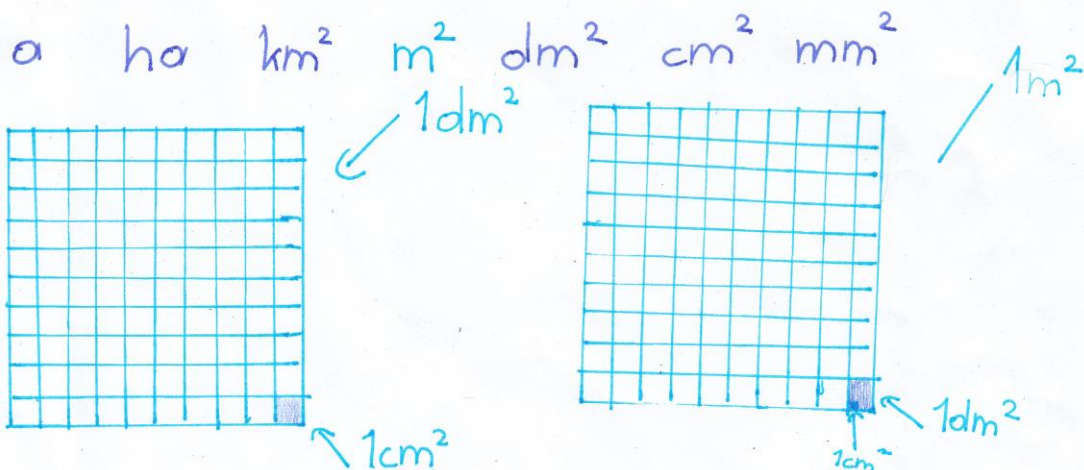 a ha km² m² dm² cm² mm²
1m²
1dm²
1dm²
1cm²
1cm²